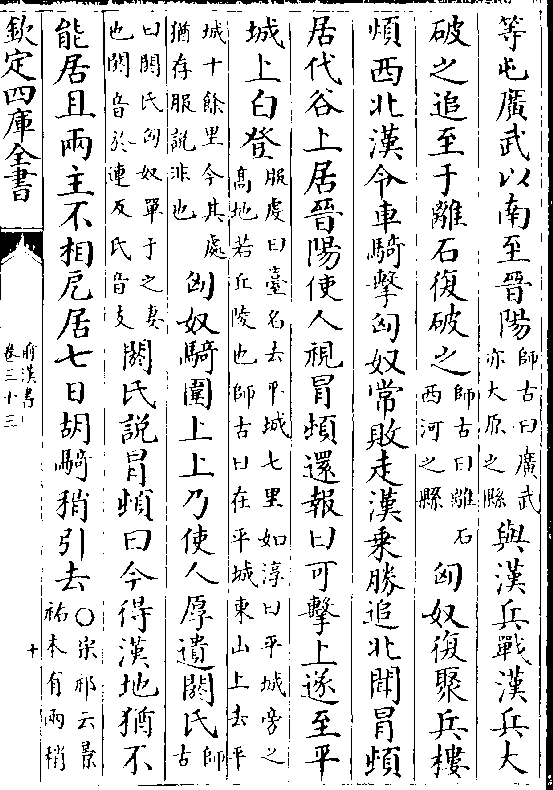 等屯廣武以南至晉陽師古曰廣武亦大原之縣與漢兵戰漢兵大
破之追至于離石復破之師古曰離石西河之縣匈奴復聚兵樓
煩西北漢令車騎擊匈奴常敗走漢乗勝追北聞冒頓
居代谷上居晉陽使人視冒頓還報曰可擊上遂至平
城上白登服虔曰臺名去平城七里如淳曰平城旁之髙地若丘陵也師古曰在平城東山上去平
城十餘里今其處猶存服説非也匈奴騎圍上上乃使人厚遺閼氏師古
曰閼氏匈奴單于之妻也閼音於連反氏音支閼氏説冒頓曰今得漢地猶不
能居且兩主不相戹居七日胡騎稍引去○宋祁云景祐本有兩稍
欽定四庫全書
前漢書
卷三十三
十